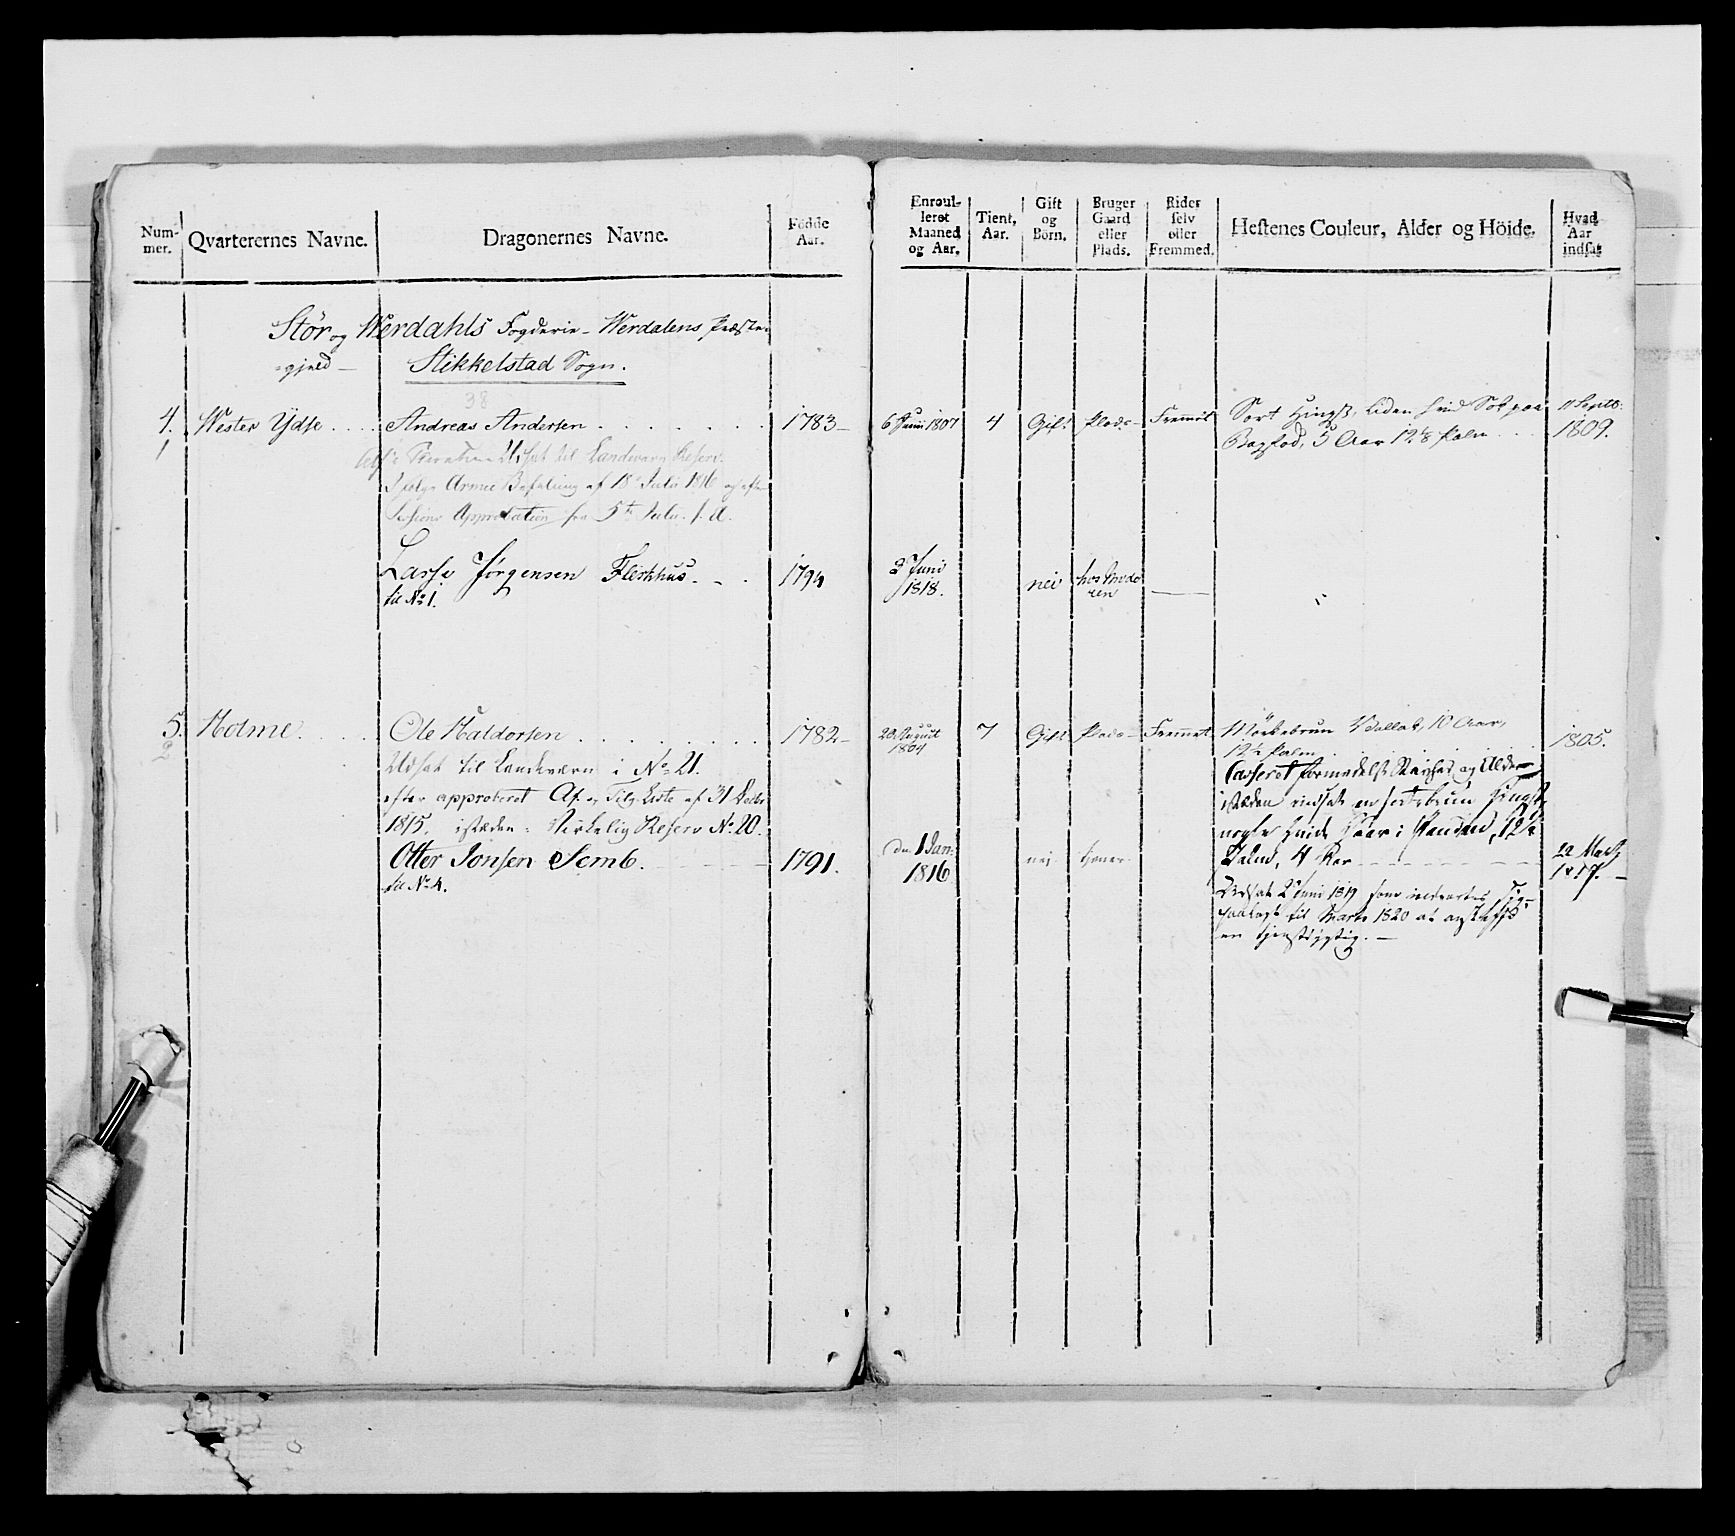 Num-
mer.
Qvarterernes Navne.
Dragonernes Navne.
Födde
Aar.
Enroul-
leret
Maaned
og Aar.
Tient,
Aar.
Gift
og
Börn.
Bruger
Gaard
eller
Plads.
Rider
selv
eller
Fremmed.
Hestenes Couleur, Alder og Höide.
Hvad
Aar
indsat
Stör og Werdahls Fogderie - Werdalens Præste-
gjeld - Stikkelstad Sogn.
38
4. Wester Ydse .... Andreas Andersen . . . . . . . 1783 - 6 Juni 1807 4 Gift Plads - Fremmet Sort Hingst, liden hvid Sok paa 11 Septb:
1 Bagfod, 5 Aar 12 1/8 Palm . . . 1809.
Udsat til Landeværn Reserv.
Ifølge Armee Befaling af 18 Juli 1816 og efter
Sessions Approbation fra 5te Julii s. A.
Lasse Jørgensen Fleskhus . - . 1794 2 Juni
1818. nei hos Mode
ren -
til No 1.
5. Holme . . . . Ole Haldorsen . . . . . . . . 1782 - 20 August
1804 7 Gift Plads - Fremmet Mörkebrun Vallak, 10 Aar, 1805.
2 12 1/2 Palm.
Udsat til Landeværn i No 21.
efter approberet Af. og Tilg. Liste af 31 Decbr
1815. istæden: Virkelig Reserv No 20.
Casseret formedelst Skarhed og Ælde -
istæden indsat en sortebrun Hingst,
nogle hvide Haar i Panden, 12 1/2
Palm, 4 Aar - - - - - 22 Marts
1817. -
Otter Jonsen Semb. - - - - 1791. Dn 1 Jan:
1816 nei tjener
til No 4.
Udsat 2 Juni 1819 som
til Marts 1820 at anskaffe
en tjenstdygtig. -